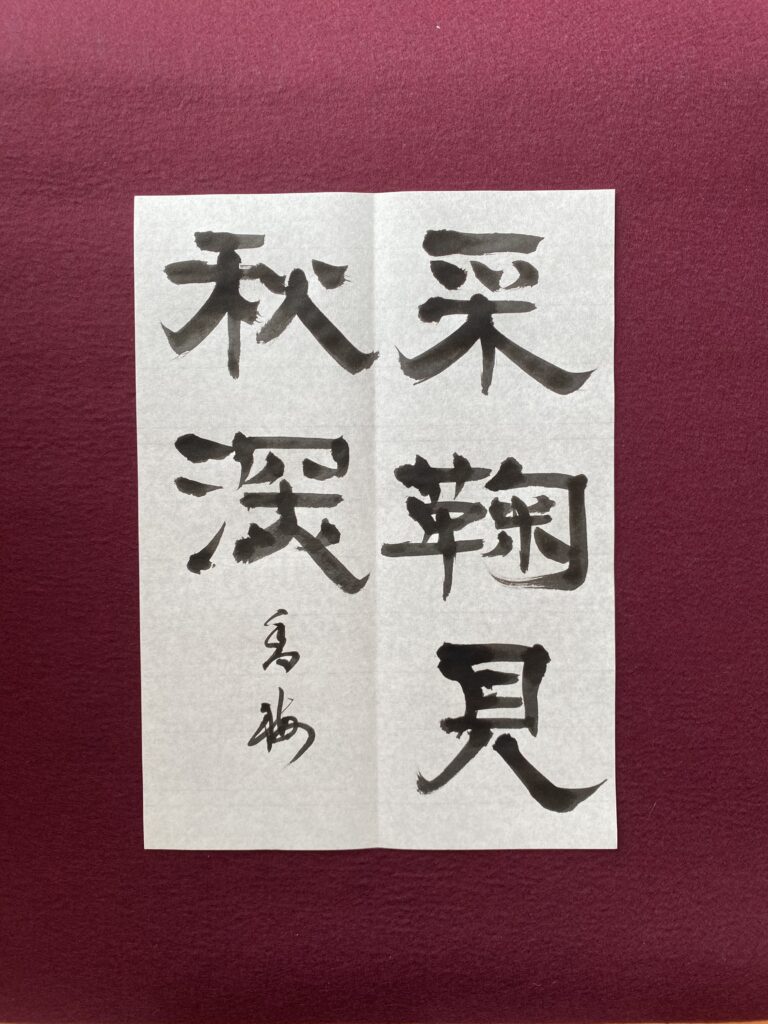 采鞠見
秋深
香梅